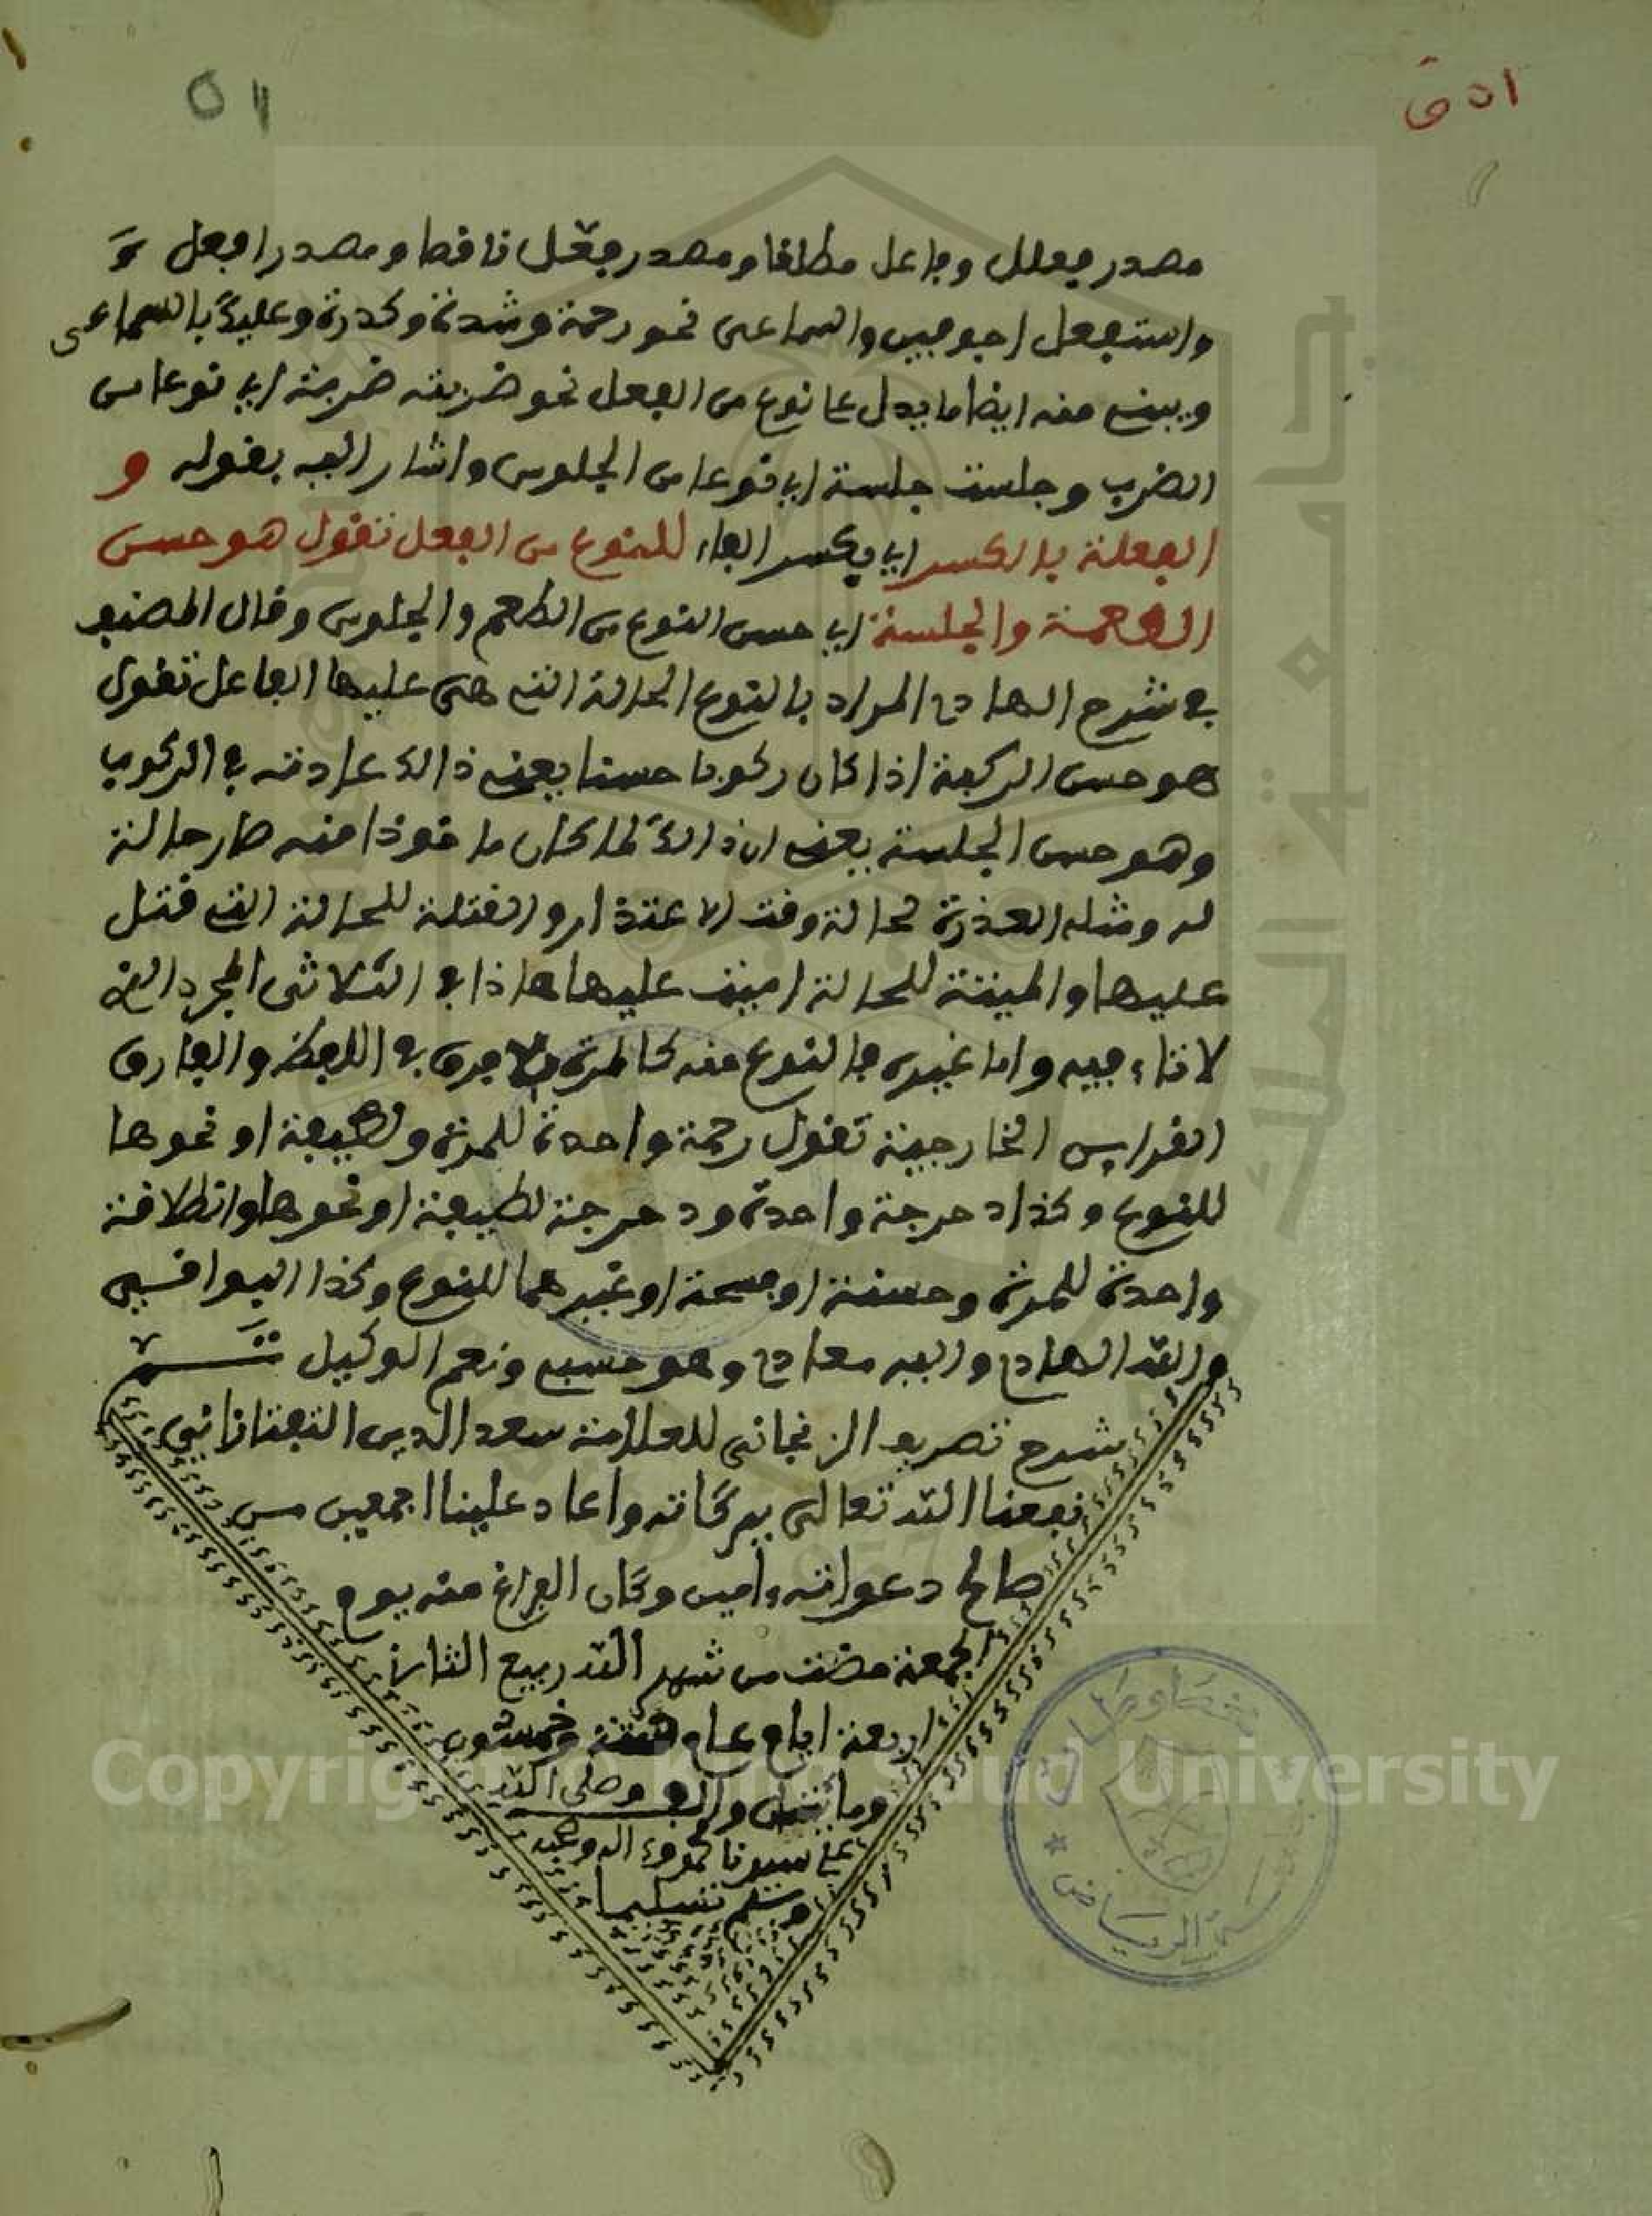 ٥١ ق
٥١
مصدر فعلل وفاعل مطلقا ومصدر فعّل ناقصا ومصدر افعل و
واستفعل اجوفين والسماعى نحو رحمة وشدة وكدرة وعليك بالسماعى
ويبنى منه ايضا ما يدل على نوع من الفعل نحو ضربته ضربة اي نوعا من
الضرب وجلست جلسة اي نوعا من الجلوس واشار اليه بقوله و
الفعلة بالكسر اي بكسر الفاء للنوع من الفعل تقول هو حسن
الطعمة والجلسة اي حسن النوع من الطعم والجلوس وقال المصنف
في شرح الهادي المراد بالنوع الحالة التى هى عليها الفاعل تقول
هو حسن الركبة اذا كان ركوبا حسنا يعنى ذالك عادته في الركوب
وهو حسن الجلسة يعنى ان ذالك لما كان ماخوذا منه صار حالة
له ومثله العذرة لحالة وقت الاعتذار والقتلة للحالة التى قتل
عليها والميتة للحالة اميت عليها هاذا في الثلاثى المجرد الذي
لا تاء فيه واما غيره فالنوع منه كالمرة بلا فرق في اللفظ والفارق
القراين الخارجية تقول رحمة واحدة للمرة ولطيفة او نحوها
للنوع وكذا دحرجة واحدة ودحرجة لطيفة او نحوها وانطلاقة
واحدة للمرة وحسنة او قبيحة او غيرهما للنوع وكذا البواقى
والله الهادي واليه معادي وهو حسبى ونعم الوكيل تـــم
شرح تصريف الزنجانى للعلامة سعد الدين التفتازانى
نفعنا الله تعالى ببركاته واعاد علينا اجمعين من
صالح دعواته ءامين وكان الفراغ منه يوم
الجمعة مضت من شهر الله ربيع الثانى
اربعة ايام عام ستة وخمسون
ومائتين والف وصلى الله
على سيدنا محمد وءاله وصحبه
وسلم تسليما
جامعة الملك سعود
Copyright © King Saud University
جامعة الرياض